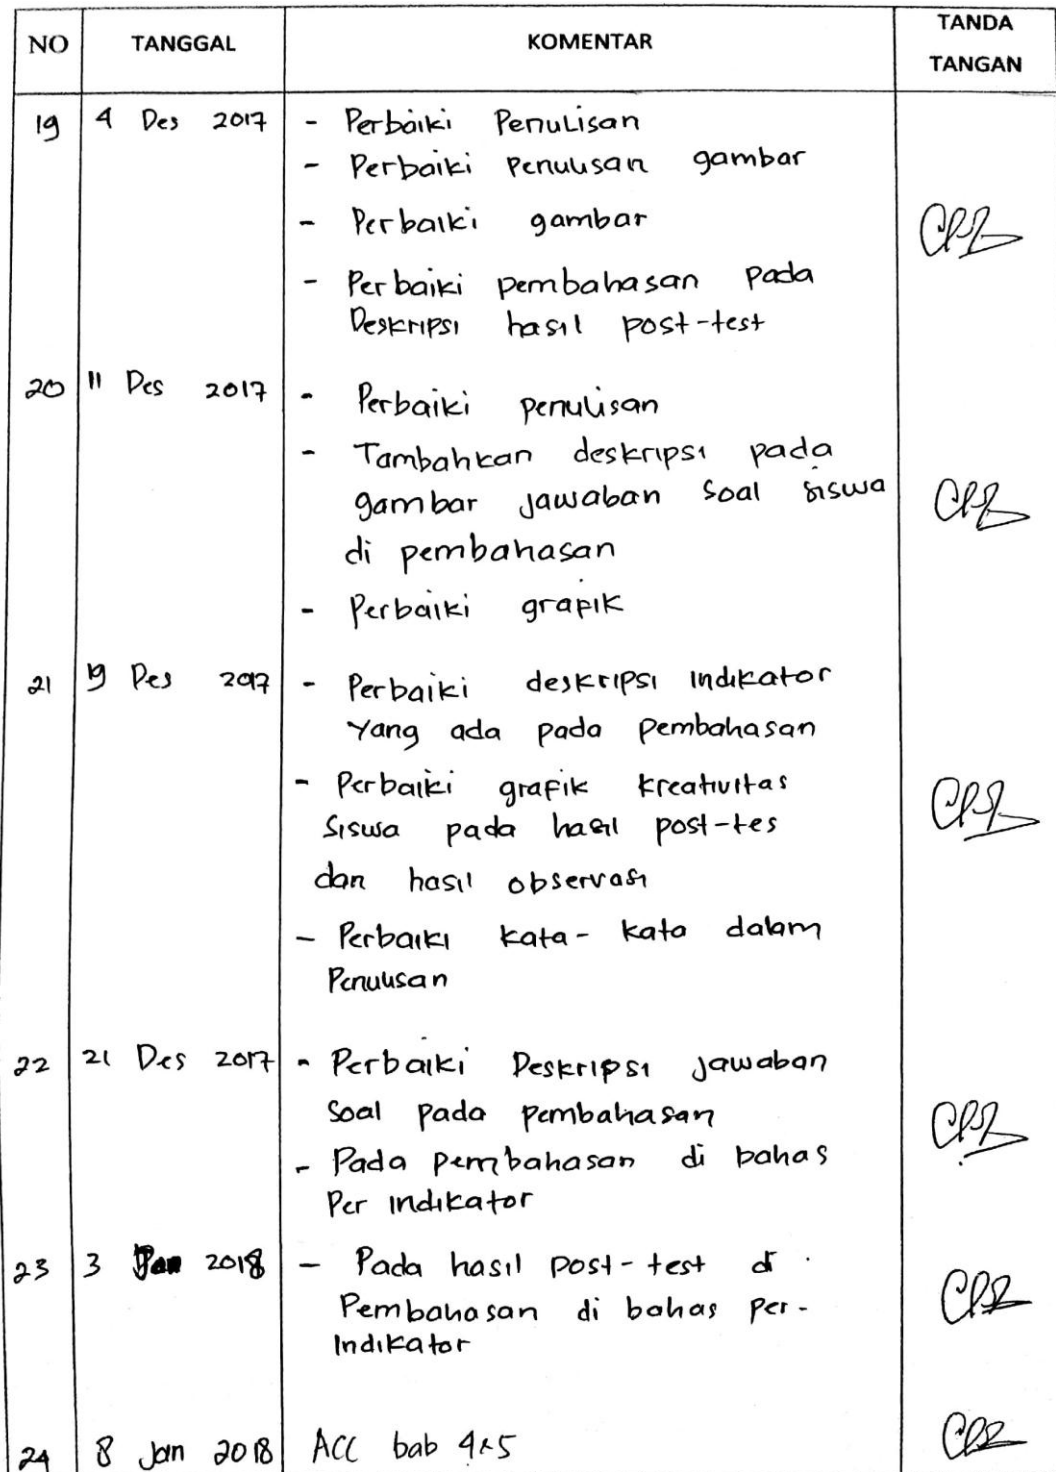 NO TANGGAL KOMENTAR TANDA TANGAN
19 4 Des 2017 - Perbaiki Penulisan
- Perbaiki penulisan gambar
- Perbaiki gambar
- Perbaiki pembahasan pada
Deskripsi hasil post-test
20 11 Des 2017 - Perbaiki penulisan
- Tambahkan deskripsi pada
gambar jawaban soal siswa
di pembahasan
- Perbaiki grapik
21 19 Des 2017 - Perbaiki deskripsi indikator
yang ada pada pembahasan
- Perbaiki grafik kreativitas
siswa pada hasil post-tes
dan hasil observasi
- Perbaiki kata-kata dalam
Penulisan
22 21 Des 2017 - Perbaiki Deskripsi jawaban
soal pada pembahasan
- Pada pembahasan di bahas
Per indikator
23 3 Jan 2018 - Pada hasil post-test di
Pembahasan di bahas per-
Indikator
24 8 Jan 2018 ACC bab 4&5